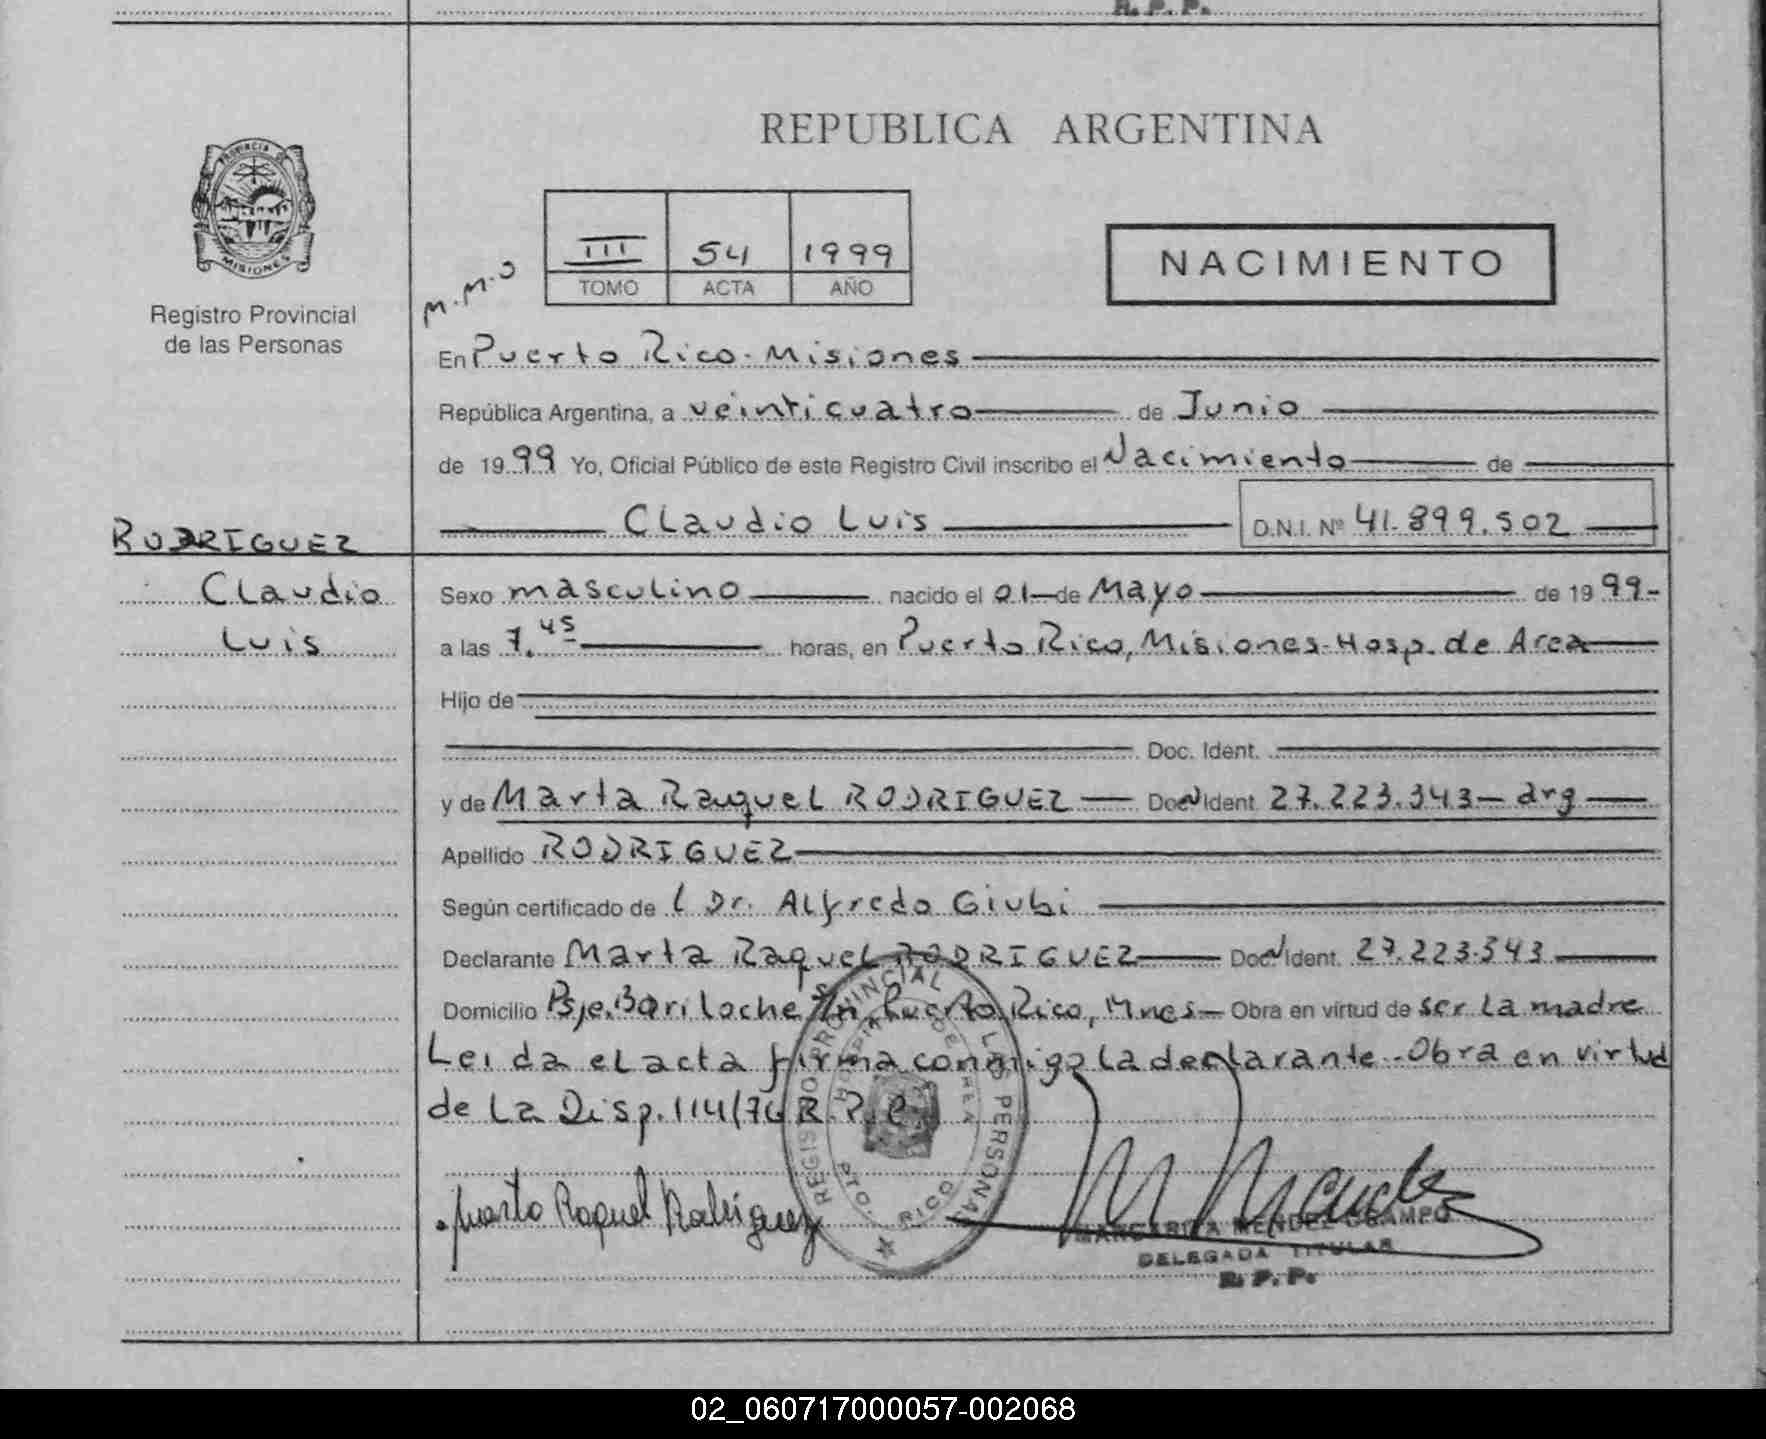 R. P. P.
REPUBLICA ARGENTINA
PROVINCIA DE
MISIONES
Registro Provincial
de las Personas
III 54 1999
TOMO ACTA AÑO
NACIMIENTO
M.M.O
En Puerto Rico - Misiones
República Argentina, a veinticuatro de Junio
de 1999 Yo, Oficial Público de este Registro Civil inscribo el Nacimiento de
Claudio Luis D.N.I. Nº 41.899.502
RODRIGUEZ
Claudio
Luis
Sexo masculino nacido el 01 de Mayo de 1999-
a las 7.45 horas, en Puerto Rico, Misiones-Hosp. de Area
Hijo de
Doc. Ident.
y de Marta Raquel RODRIGUEZ Doc. N Ident. 27.223.343 - arg
Apellido RODRIGUEZ
Según certificado de l Dr. Alfredo Giubi
Declarante Marta Raquel RODRIGUEZ Doc. N Ident. 27.223.343
Domicilio Psje. Bariloche s/n, Puerto Rico, Mnes - Obra en virtud de ser la madre
Leida el acta firma conmigo la declarante - Obra en virtud
de la Disp. 114/76 R. P. P.
REGISTRO PROVINCIAL DE LAS PERSONAS
HOSPITAL DE AREA
PTO. RICO
Marta Raquel Rodriguez
MARGARITA MENDEZ OCAMPO
DELEGADA TITULAR
R. P. P.
02_060717000057-002068